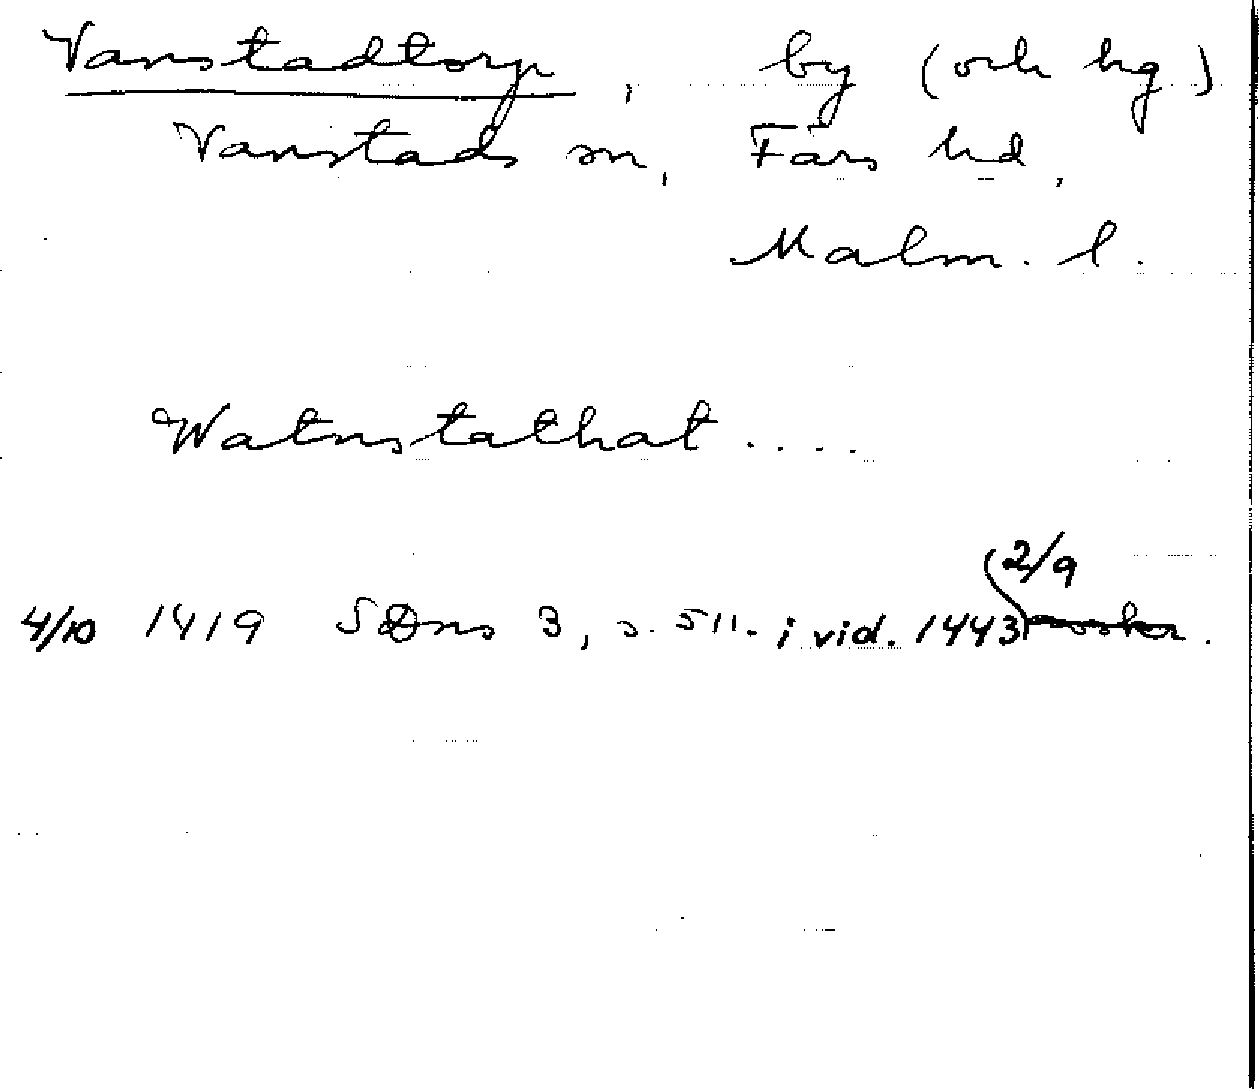 Vanstadtorp, by (och hg)
Vanstads sn, Färs hd,
Malm. l.
Watnstathat ....
2/9
4/10 1419 SDns 3, s. 511. i vid. 1443 .